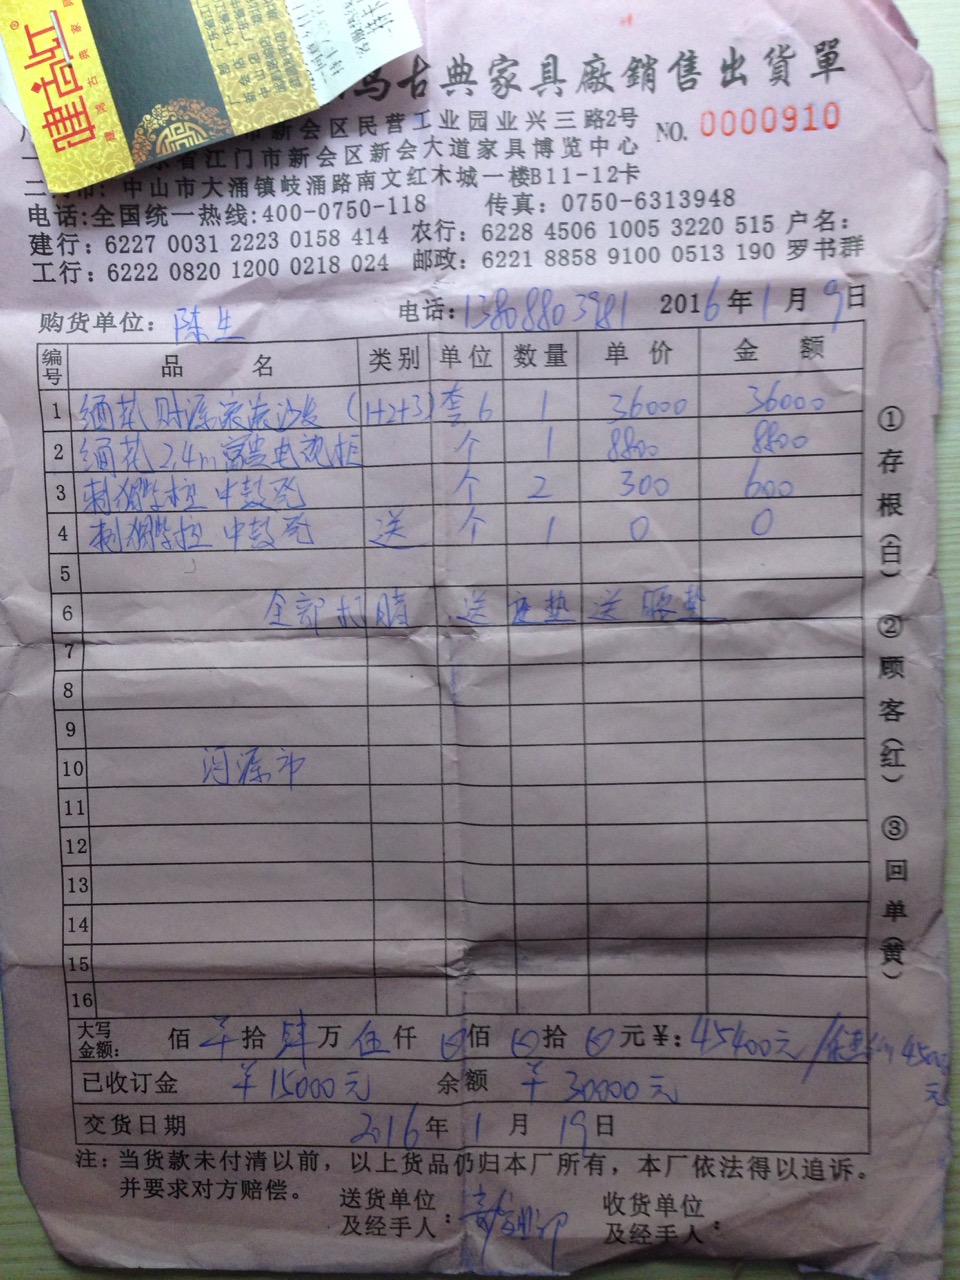 建古灯
古典家具廠銷售出貨單
市新会区民营工业园业兴三路2号
NO. 0000910
省江门市新会区新会大道家具博览中心
中山市大涌镇岐涌路南文红木城一楼B11-12卡
电话:全国统一热线:400-0750-118 传真: 0750-6313948
建行: 6227 0031 2223 0158 414 农行: 6228 4506 1005 3220 515 户名:
工行: 6222 0820 1200 0218 024 邮政: 6221 8858 9100 0513 190 罗书群
购货单位: 陈生 电话: 13808803981 2016年1月9日
编号 品 名 类别 单位 数量 单 价 金 额
1 缅花财源滚滚沙发 (1+2+3) 套6 1 36000 36000
2 缅花2.4m富贵电视柜 个 1 8800 8800
3 刺猬紫檀 中鼓凳 个 2 300 600
4 刺猬紫檀 中鼓凳 送 个 1 0 0
5
6 全部打腊 送座垫 送腰垫
7
8
9
10 河源市
11
12
13
14
15
16
①存根(白) ②顾客(红) ③回单(黄)
大写金额: 佰 拾 肆万 伍仟 佰 拾 元¥: 45400元 45000元
已收订金 ¥15000元 余额 ¥30000元
交货日期 2016年1月19日
注: 当货款未付清以前,以上货品仍归本厂所有,本厂依法得以追诉。
并要求对方赔偿。
送货单位及经手人: 收货单位及经手人: